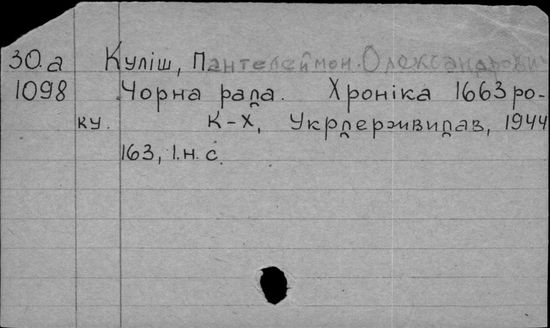 30.а Куліш, Пантелеймон Олександрович
1098 Чорна рада. Хроніка 1663 ро-
ку. К-Х, Укрдержвидав, 1944
163, 1.н.с.